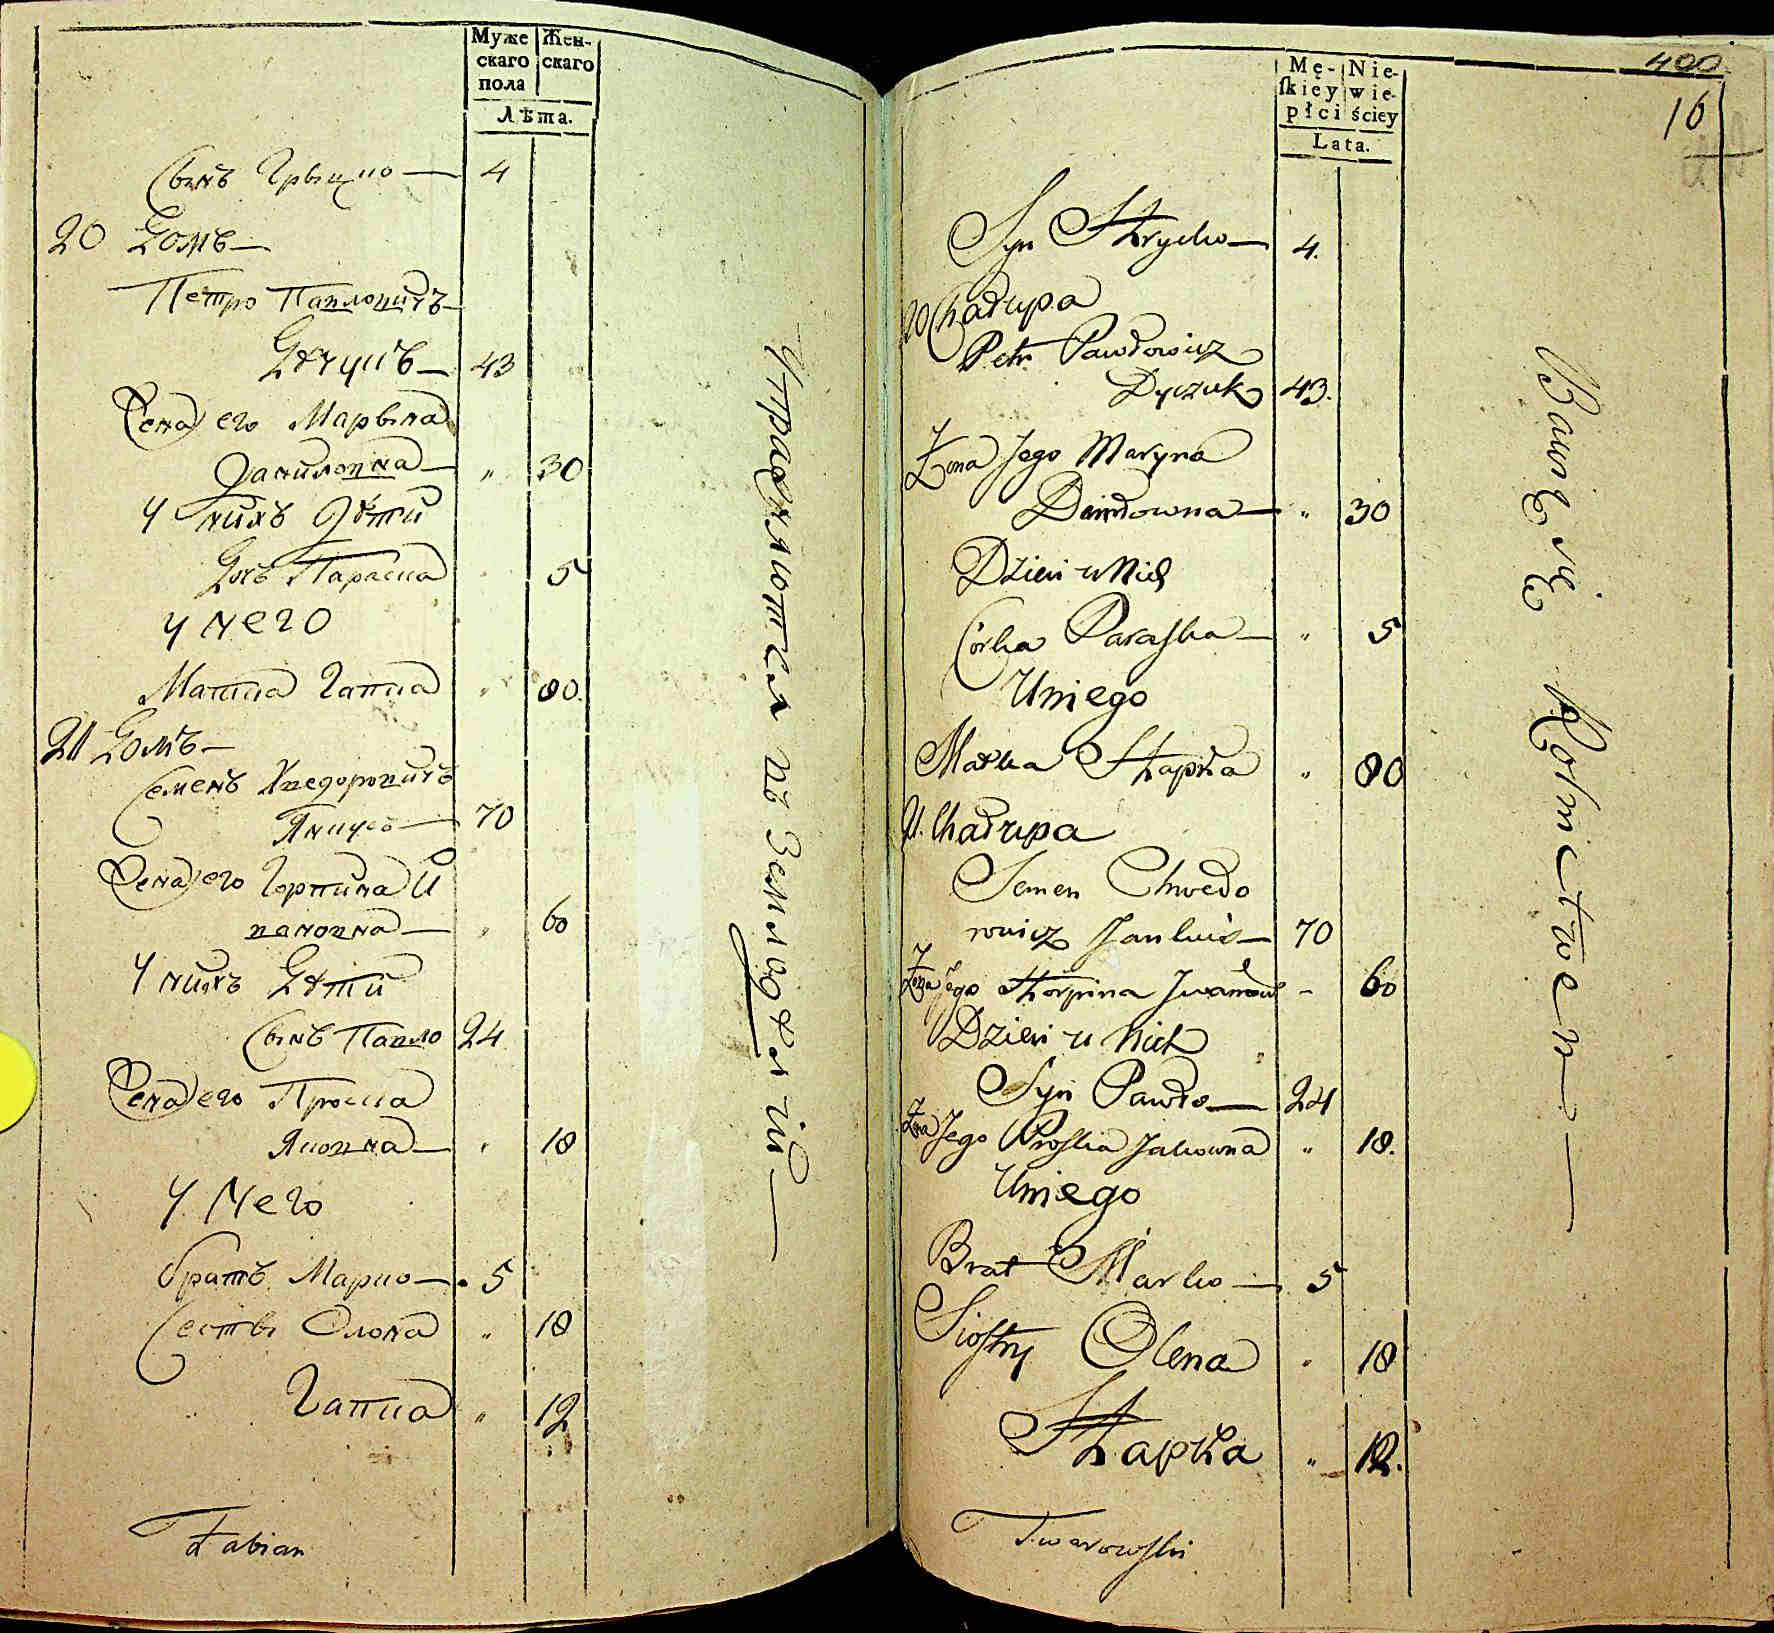 Муже Жен-
скаго скаго
пола
Лѣта.
Сынъ Грыцко — 4
20 Домъ —
Петро Павловичъ
Дячукъ — 43
Жена его Марына
Даниловна — " 30
У нихъ Дѣти
Дочь Параска 5
У него
Матка Гапка " 80.
21 Домъ —
Семенъ Хведоровичъ
Янкусь — 70
Жена его Горпина И
вановна — " 60
У нихъ Дѣти
Сынъ Павло 24
Жена его Проска
Яковна — " 18
У него
братъ Марко — 5
Сестры Олена " 18
Гапка " 12
Fabian
Упражняются въ Земледѣліи —
400.
16
Mę- Nie-
skiey wie-
płci ściey
Lata.
Syn Hrycko — 4.
20 Chałupa
Petr Pawłowicz
Dyczuk 43.
Żona Jego Maryna
Daniłowna — " 30
Dzieci u Nich
Córka Paraska — " 5
U niego
Matka Hapka " 80
21. Chałupa
Semen Chwedo
rowicz Jankuś — 70
Żona Jego Horpina Iwanow - 60
Dzieci u Nich
Syn Pawło — 24
Żona Jego Proska Jakowna " 18.
U niego
Brat Marko — 5
Siostry Olena " 18
Hapka " 12.
Twarowski
Bawię się Rolnictwem —